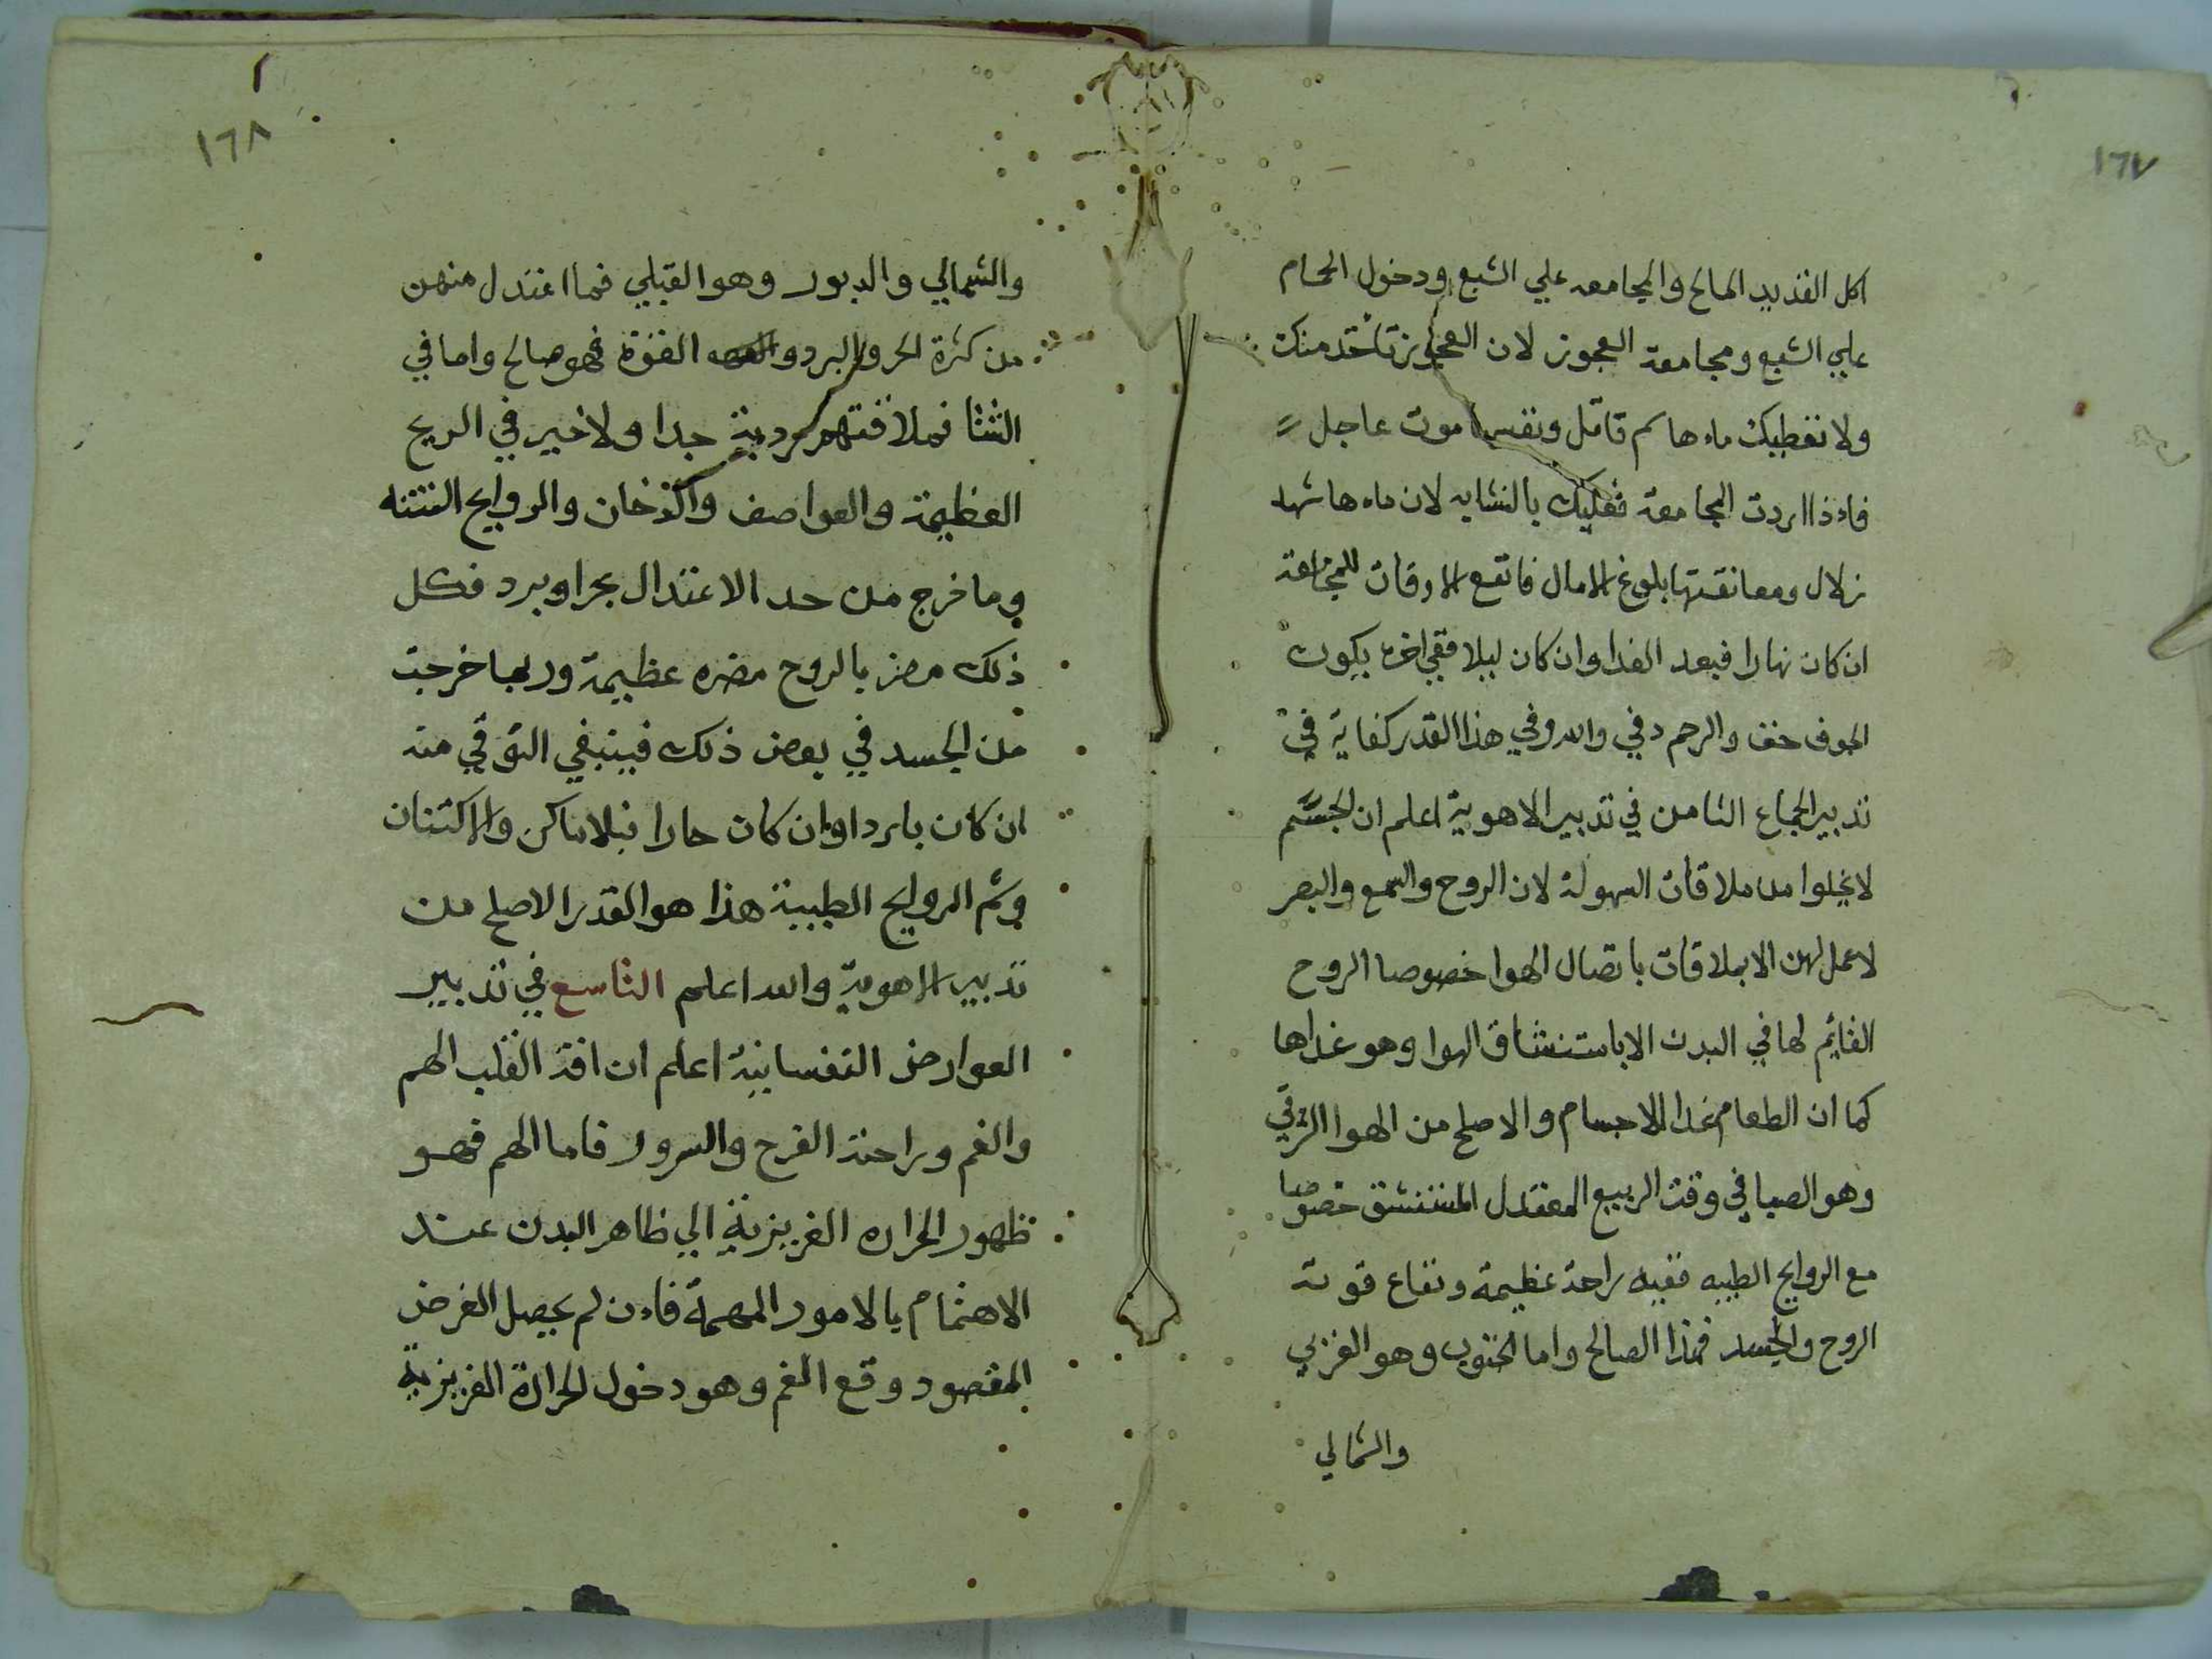 ١٦٧
اكل القديد المالح والمجامعه علي الشبع ودخول الحمام
علي الشبع ومجامعة العجوز لان العجوز تاخذ منك
ولا تعطيك ماءها سم قاتل ونفسها موت عاجل
فاءذا اردت المجامعة فعليك بالشابه لان ماءها شهد
زلال ومعانقتها بلوغ الامال فانفع الاوقات للمجامعة
ان كان نهارا فبعد الغدا وان كان ليلا ففي اخره يكون
الجوف خف والرحم دفي والله وفي هذا القدر كفاية في
تدبير الجماع الثامن في تدبير الاهوية اعلم ان الجسم
لا يخلوا من ملاقات السهولة لان الروح والسمع والبصر
لا عمل لهن الا بملاقات باتصال الهوا خصوصا الروح
القايم لها في البدن الا باستنشاق الهوا وهو غداها
كما ان الطعام غدا للاجسام والاصلح من الهوا الشرقي
وهو الصبا في وقت الربيع المعتدل المستنشق خصوصا
مع الروايح الطيبه ففيه راحة عظيمة ونفاع قوت
الروح والجسد فهذا الصالح واما الجنوب وهو الغربي
والشمالي
١٦٨
والشمالي والدبور وهو القبلي فما اعتدل منهن
من كثرة الحر والبرد والقوة فهو صالح واما في
الشتا فملاقتهم ردية جدا ولا خير في الريح
العظيمة والعواصف والدخان والروايح النتنه
وما خرج من حد الاعتدال بحر او برد فكل
ذلك مضر بالروح مضره عظيمة وربما خرجت
من الجسد في بعض ذلك فينبغي التوقي منه
ان كان باردا وان كان حارا فبالاماكن والاكتنان
وشم الروايح الطيبة هذا هو القدر الاصلح من
تدبير الاهوية والله اعلم التاسع في تدبير
العوارض النفسانية اعلم ان افة القلب الهم
والغم وراحته الفرح والسرور فاما الهم فهو
ظهور الحراره الغريزية الي ظاهر البدن عند
الاهتمام بالامور المهمة فاءن لم يحصل الغرض
المقصود وقع الغم وهو دخول الحرارة الغريزية